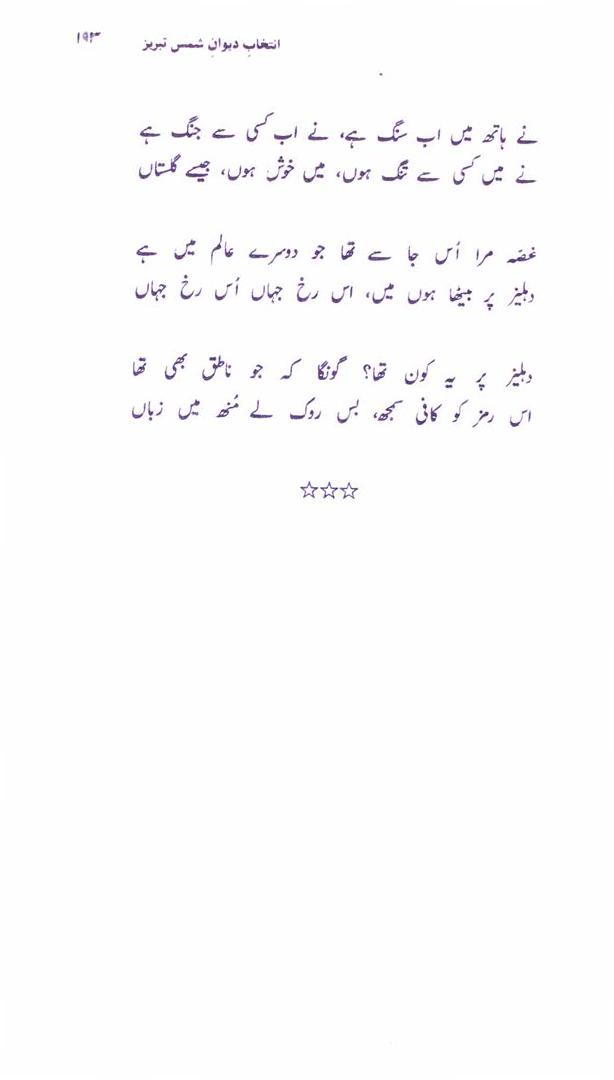 انتخابِ دیوانِ شمس تبریز ۱۹۳
نے ہاتھ میں اب سنگ ہے، نے اب کسی سے جنگ ہے
نے میں کسی سے تنگ ہوں، میں خوش ہوں، جیسے گلستاں
غصّہ مرا اُس جا سے تھا جو دوسرے عالم میں ہے
دہلیز پر بیٹھا ہوں میں، اس رخ جہاں اُس رخ جہاں
دہلیز پر یہ کون تھا؟ گونگا کہ جو ناطق بھی تھا
اس رمز کو کافی سمجھ، بس روک لے مُنھ میں زباں
☆☆☆